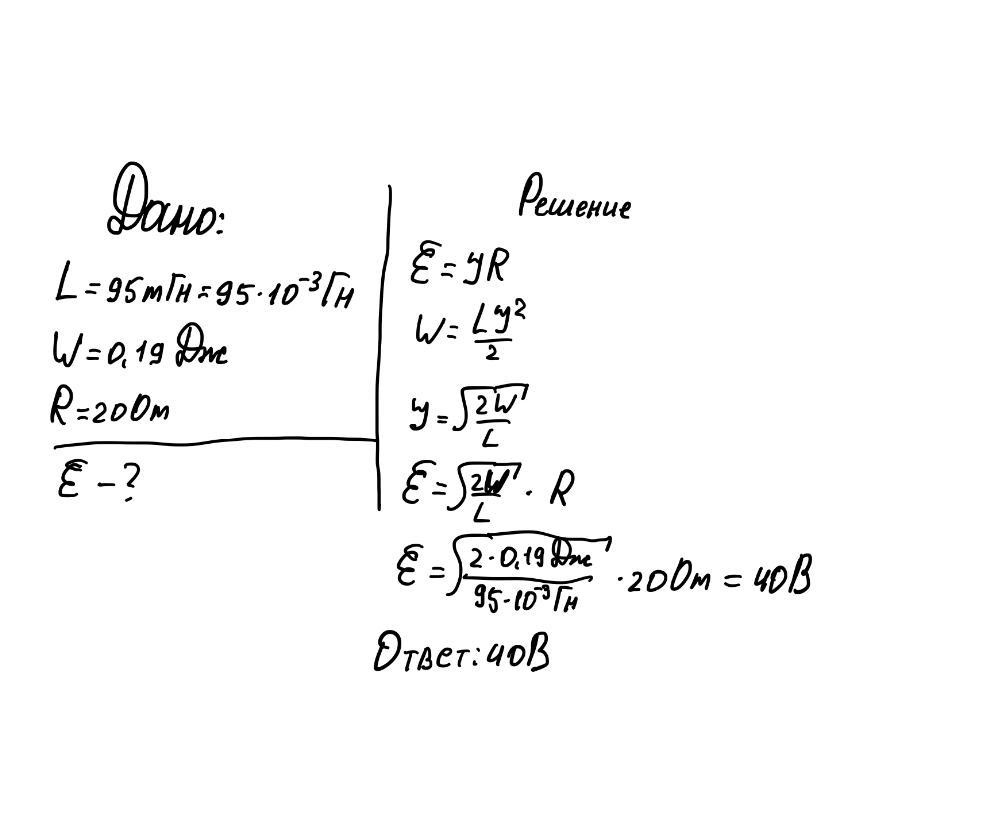 Дано:
L = 95мГн = 95·10⁻³Гн
W = 0,19 Дж
R = 20 Ом
ℰ - ?
Решение
ℰ = yR
W = Ly²/2
y = √(2W/L)
ℰ = √(2W/L) · R
ℰ = √(2·0,19Дж/95·10⁻³Гн) · 20 Ом = 40В
Ответ: 40В